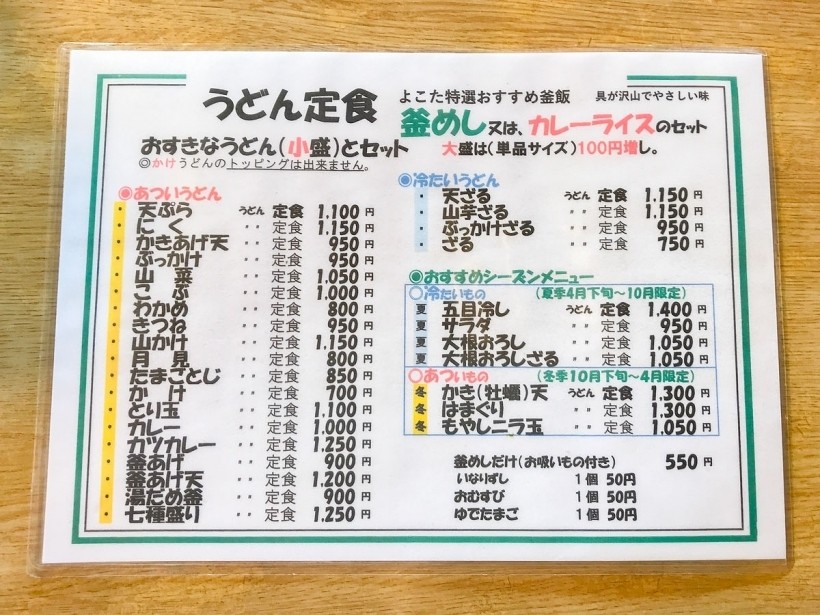 うどん定食
よこた特選おすすめ釜飯 具が沢山でやさしい味
釜めし又は、カレーライスのセット
おすきなうどん(小盛)とセット 大盛は(単品サイズ)100円増し。
◎かけうどんのトッピングは出来ません。
◉あついうどん
・ 天ぷら うどん 定食 1,100 円
・ にく 〃 定食 1,150 円
・ かきあげ天 〃 定食 950 円
・ ぶっかけ 〃 定食 950 円
・ 山菜 〃 定食 1,050 円
・ こぶ 〃 定食 1,000 円
・ わかめ 〃 定食 800 円
・ きつね 〃 定食 950 円
・ 山かけ 〃 定食 1,150 円
・ 月見 〃 定食 800 円
・ たまごとじ 〃 定食 850 円
・ かけ 〃 定食 700 円
・ とり玉 〃 定食 1,100 円
・ カレー 〃 定食 1,000 円
・ カツカレー 〃 定食 1,250 円
・ 釜あげ 〃 定食 900 円
・ 釜あげ天 〃 定食 1,200 円
・ 湯だめ釜 〃 定食 900 円
・ 七種盛り 〃 定食 1,250 円
◉冷たいうどん
・ 天ざる うどん 定食 1,150 円
・ 山芋ざる 〃 定食 1,150 円
・ ぶっかけざる 〃 定食 950 円
・ ざる 〃 定食 750 円
◉おすすめシーズンメニュー
○冷たいもの (夏季4月下旬～10月限定)
夏 五目冷し うどん 定食 1,400 円
夏 サラダ 〃 定食 950 円
夏 大根おろし 〃 定食 1,050 円
夏 大根おろしざる 〃 定食 1,050 円
○あついもの (冬季10月下旬～4月限定)
冬 かき(牡蠣)天 うどん 定食 1,300 円
冬 はまぐり 〃 定食 1,300 円
冬 もやしニラ玉 〃 定食 1,050 円
釜めしだけ(お吸いもの付き) 550 円
いなりずし 1個 50円
おむすび 1個 50円
ゆでたまご 1個 50円